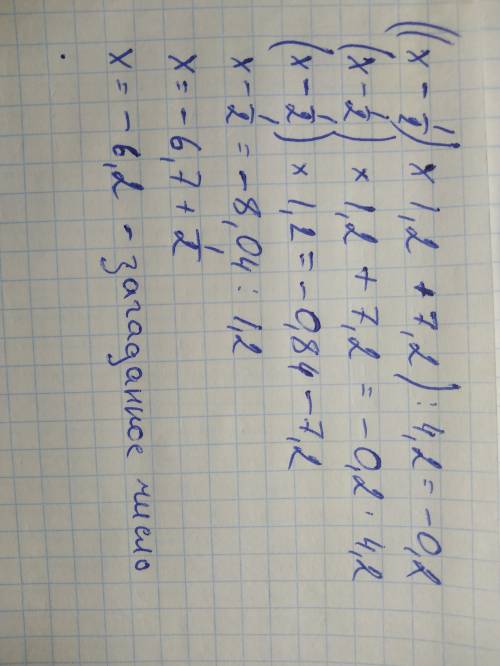 ((x - 1/2) × 1,2 + 7,2) : 4,2 = -0,2
(x - 1/2) × 1,2 + 7,2 = -0,2 · 4,2
(x - 1/2) × 1,2 = -0,84 - 7,2
x - 1/2 = -8,04 : 1,2
x = -6,7 + 1/2
x = -6,2 - загаданное число